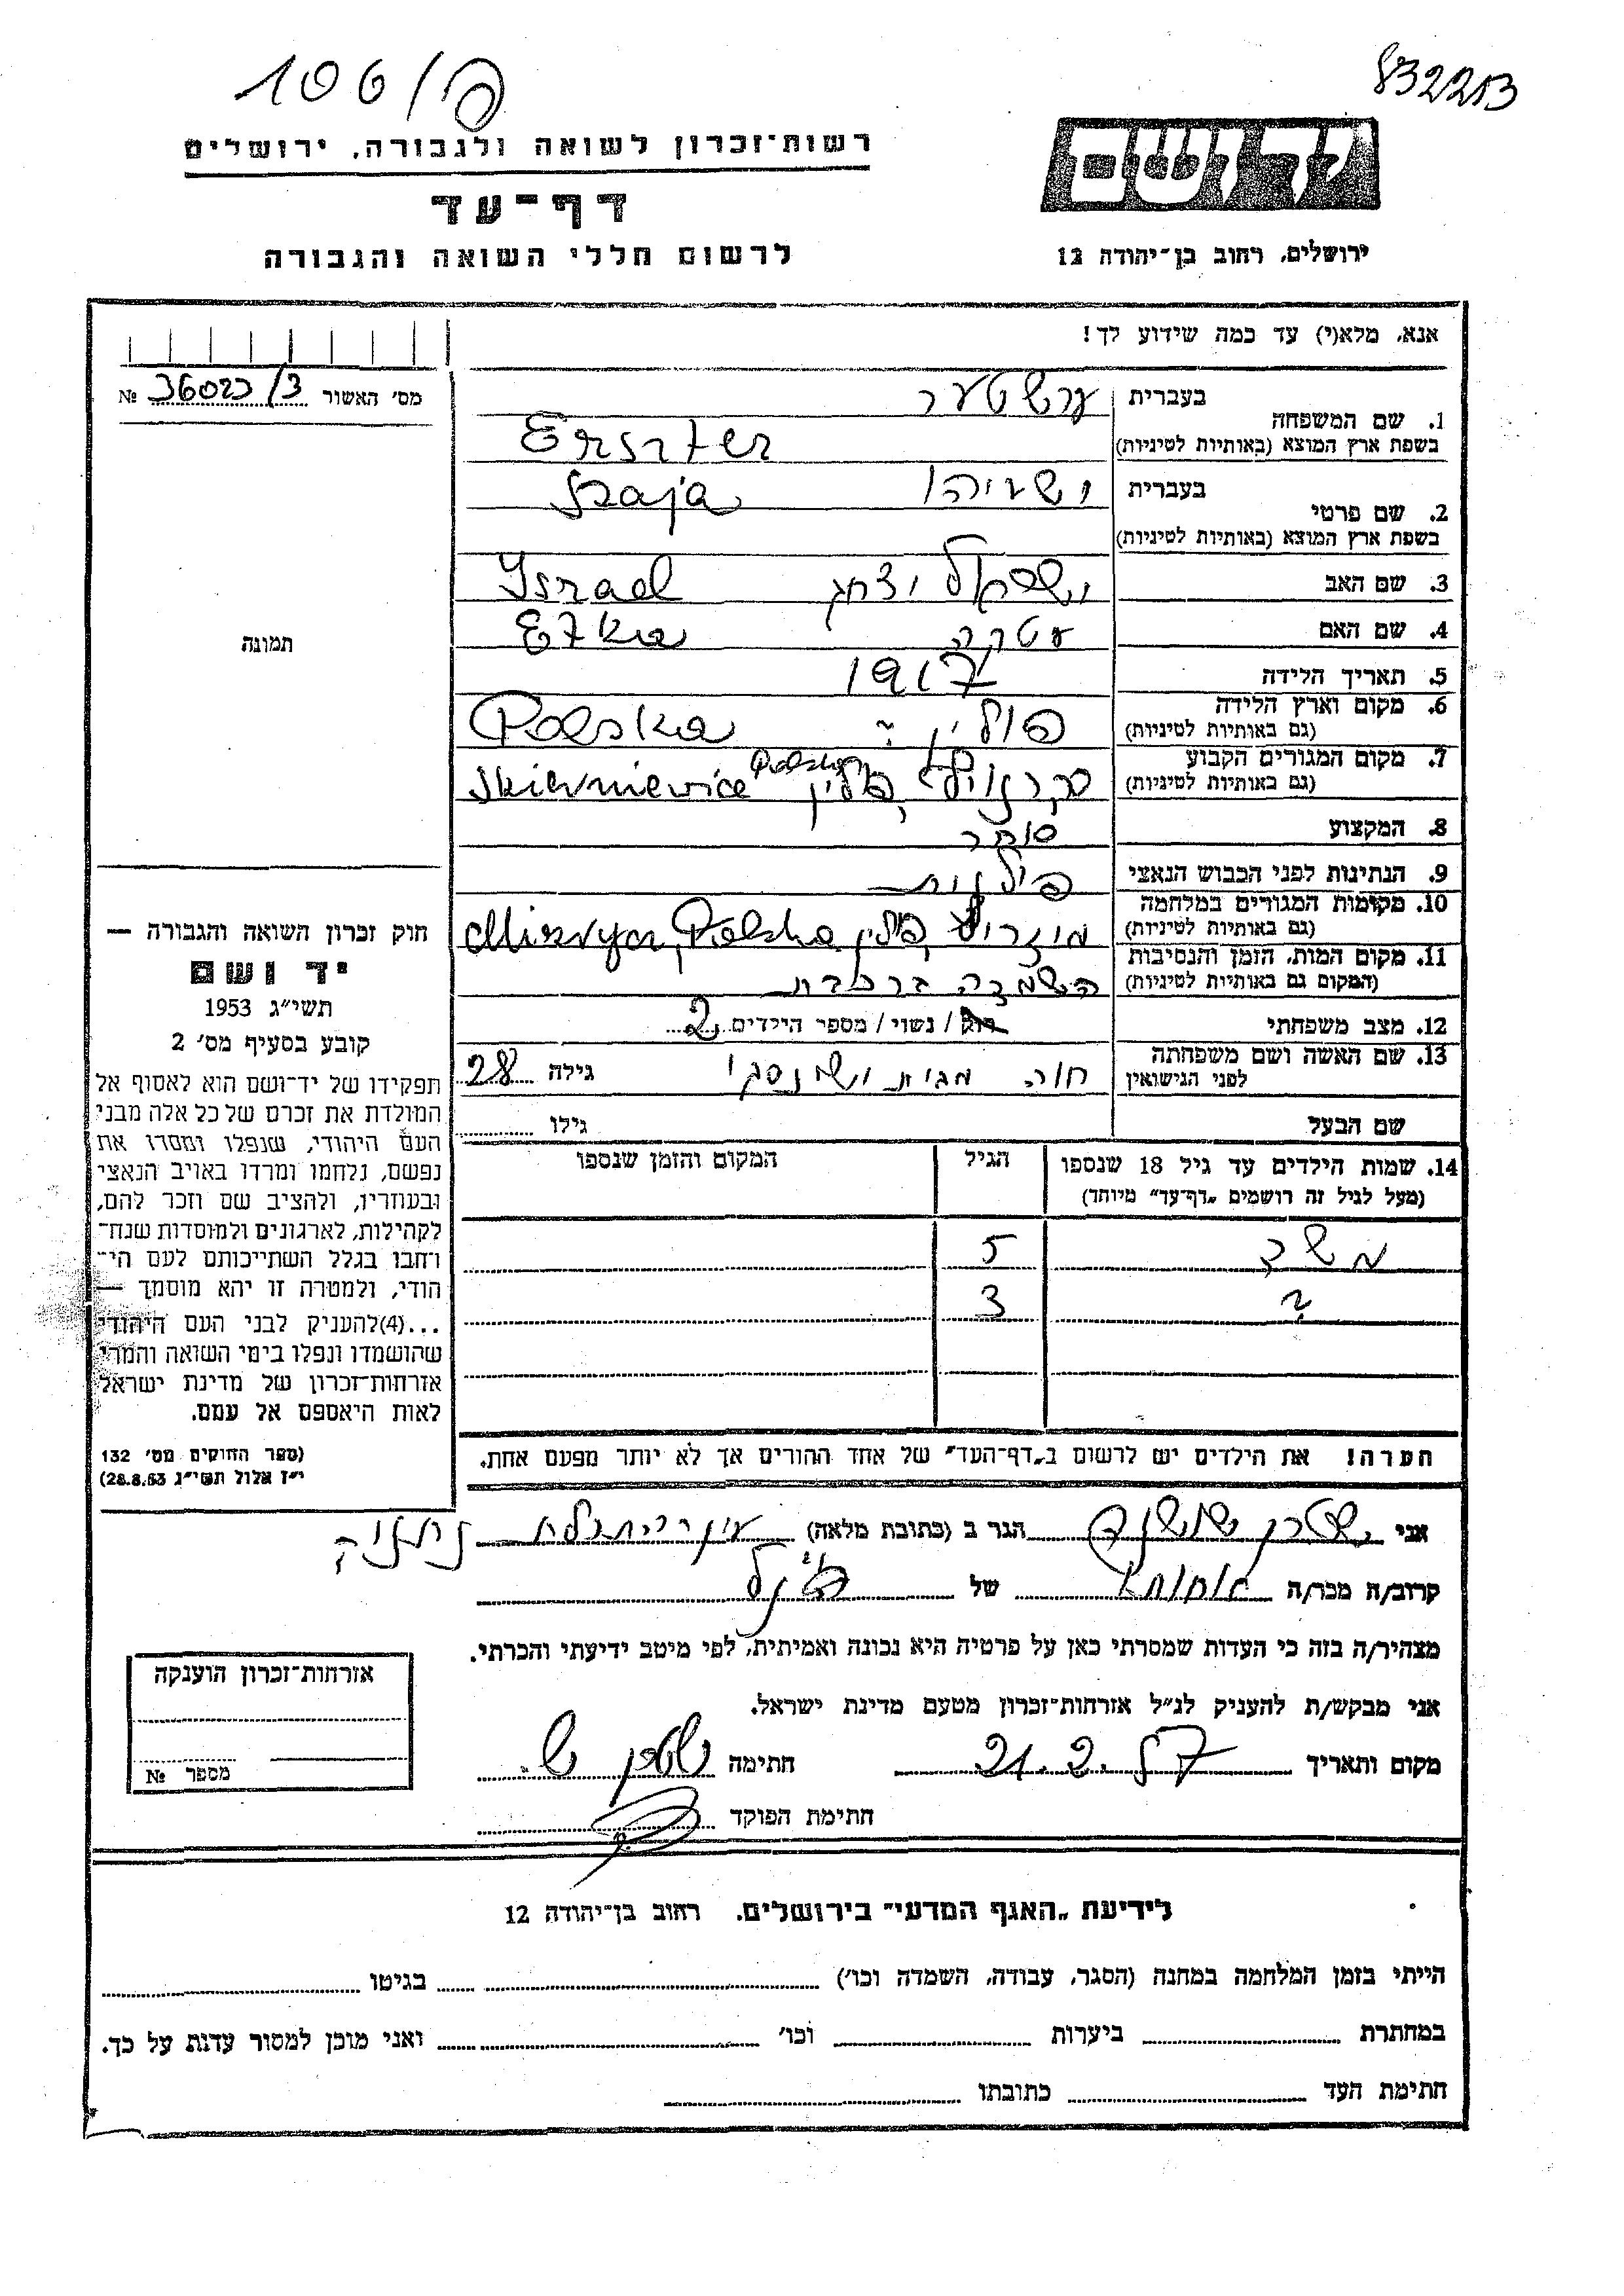 106/פ
832213
רשות־זכרון לשואה ולגבורה, ירושלים
דף־עד
לרשום חללי השואה והגבורה
ידושם
ירושלים, רחוב בן־יהודה 12
אנא, מלא(י) עד כמה שידוע לך!
מס׳ האשור 36023/3 №
תמונה
בעברית ערשטער
1. שם המשפחה
בשפת ארץ המוצא (באותיות לטיניות) Erszter
בעברית ישעיהו Szaja
2. שם פרטי
בשפת ארץ המוצא (באותיות לטיניות)
3. שם האב ישראל יצחק Israel
4. שם האם עטקה Etka
5. תאריך הלידה 1917
6. מקום וארץ הלידה פולין ? Polska
(גם באותיות לטיניות)
7. מקום המגורים הקבוע
(גם באותיות לטיניות) פולין Polska Skierniewice
8. המקצוע סוחר
9. הנתינות לפני הכבוש הנאצי פולנית
10. מקומות המגורים במלחמה
(גם באותיות לטיניות) פולין Polska
11. מקום המות, הזמן והנסיבות
(המקום גם באותיות לטיניות) השמדה ברכבת
12. מצב משפחתי רוק / נשוי / מספר הילדים 2
13. שם האשה ושם משפחתה
לפני הנישואין חוה גילה 28
שם הבעל גילו
14. שמות הילדים עד גיל 18 שנספו הגיל המקום והזמן שנספו
(מעל לגיל זה רושמים „דף־עד״ מיוחד)
משה 5
? 3
הערה! את הילדים יש לרשום ב„דף־העד״ של אחד ההורים אך לא יותר מפעם אחת.
חוק זכרון השואה והגבורה —
יד ושם
תשי״ג 1953
קובע בסעיף מס׳ 2
תפקידו של יד־ושם הוא לאסוף אל
המולדת את זכרם של כל אלה מבני
העם היהודי, שנפלו ומסרו את
נפשם, נלחמו ומרדו באויב הנאצי
ובעוזריו, ולהציב שם וזכר להם,
לקהילות, לארגונים ולמוסדות שנח־
רחבו בגלל השתייכותם לעם הי־
הודי, ולמטרה זו יהא מוסמך —
...(4) להעניק לבני העם היהודי
שהושמדו ונפלו בימי השואה והמרי
אזרחות־זכרון של מדינת ישראל
לאות היאספם אל עמם.
(ספר החוקים מס׳ 132
י״ז אלול תשי״ג 28.8.53)
אני שטרן שושנה הגר ב (כתובת מלאה) נתניה
קרוב/ה מכר/ה אחות של הנ״ל
מצהיר/ה בזה כי העדות שמסרתי כאן על פרטיה היא נכונה ואמיתית, לפי מיטב ידיעתי והכרתי.
אני מבקש/ת להעניק לנ״ל אזרחות־זכרון מטעם מדינת ישראל.
מקום ותאריך 21.2.57 חתימה שטרן ש.
חתימת הפוקד
אזרחות־זכרון הוענקה
מספר №
לידיעת „האגף המדעי״ בירושלים, רחוב בן־יהודה 12
הייתי בזמן המלחמה במחנה (הסגר, עבודה, השמדה וכו׳) בגיטו
במחתרת ביערות וכו׳ ואני מוכן למסור עדות על כך.
חתימת העד כתובתו